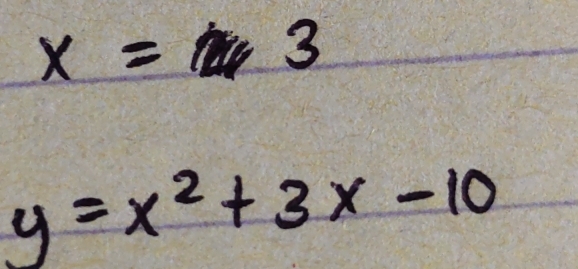 x = 3
y = x² + 3x - 10